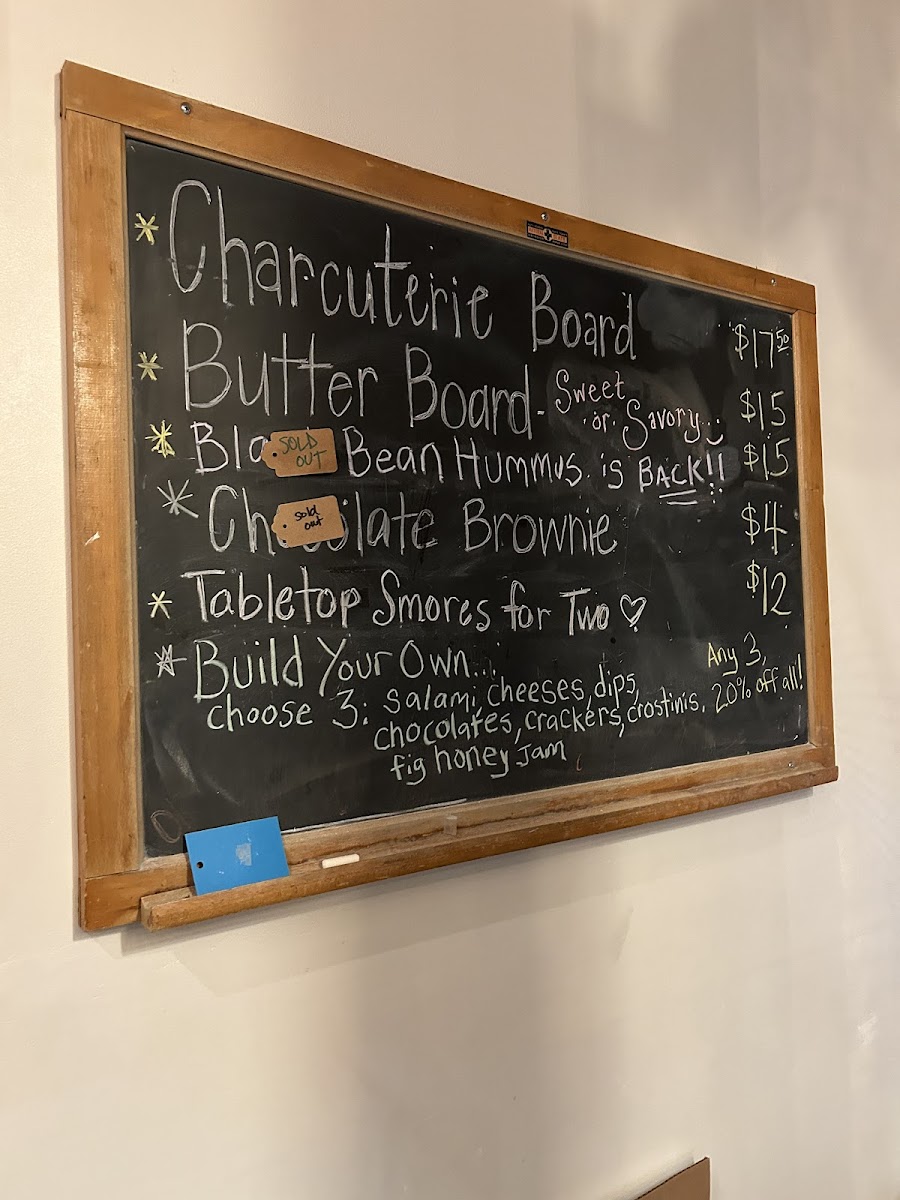 * Charcuterie Board $17.50
* Butter Board - Sweet or Savory... $15
* Bla SOLD OUT Bean Hummus is BACK!! $15
* Ch sold out olate Brownie $4
* Tabletop Smores for Two ♡ $12
* Build Your Own... Any 3,
choose 3: salami, cheeses, dips, 20% off all!
chocolates, crackers, crostinis,
fig honey jam